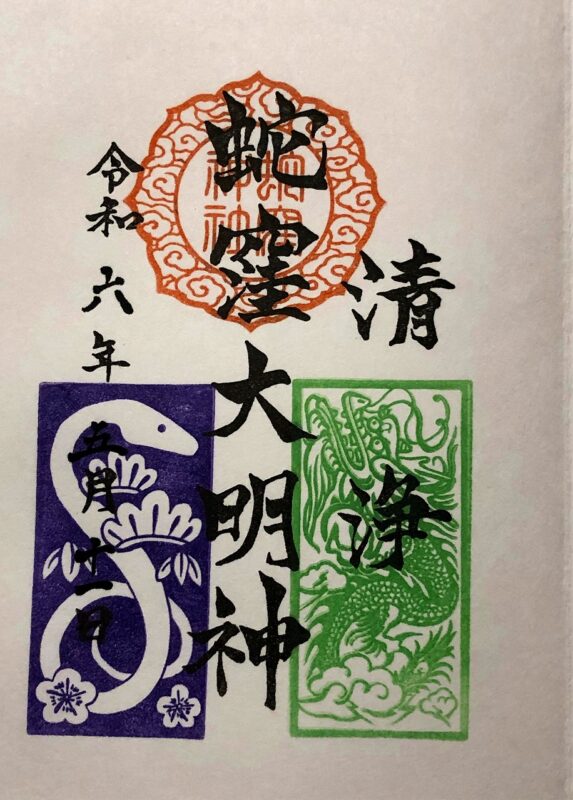 清浄
蛇窪大明神
令和六年五月十一日
蛇窪
神社